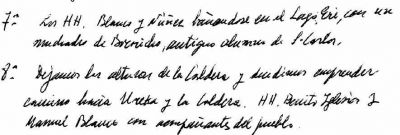 7.ª Los HH. Blanco y Núñez bañandose en el Lago, Gris, con un
de Borrindes, antiguo alumno de S. Carlos,
8.ª Dejamos las alturas de la Caldera y decidimos emprender
camino hacia Ureta y la Caldera. HH. Benito Iglesias y
Manuel Blanco con acompañante del pueblo.